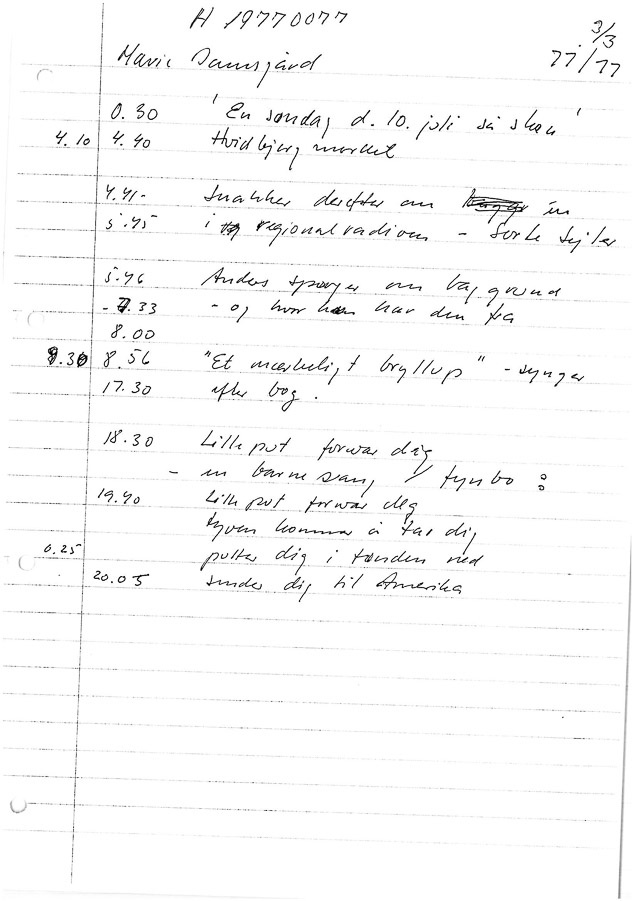 H 19770077
3/3
77/77
Marie Damsgård
0.30 'En søndag d. 10. juli så skøn'
4.10 4.40 Hvidbjerg marked
4.41- Snakker derefter om en
5.45 i regionalradioen - Sorte Sejler
5.46 Anders spørger om baggrund
- 7.33 - og hvor hun har den fra
8.00
8.30 8.56 "Et mærkeligt bryllup" - synger
17.30 efter bog.
18.30 Lilleput forvar dig
- en barnesang / fynbo :
19.40 Lilleput forvar dig
tyven kommer å tar dig
putter dig i tønden ned
0.25
20.05 sender dig til Amerika